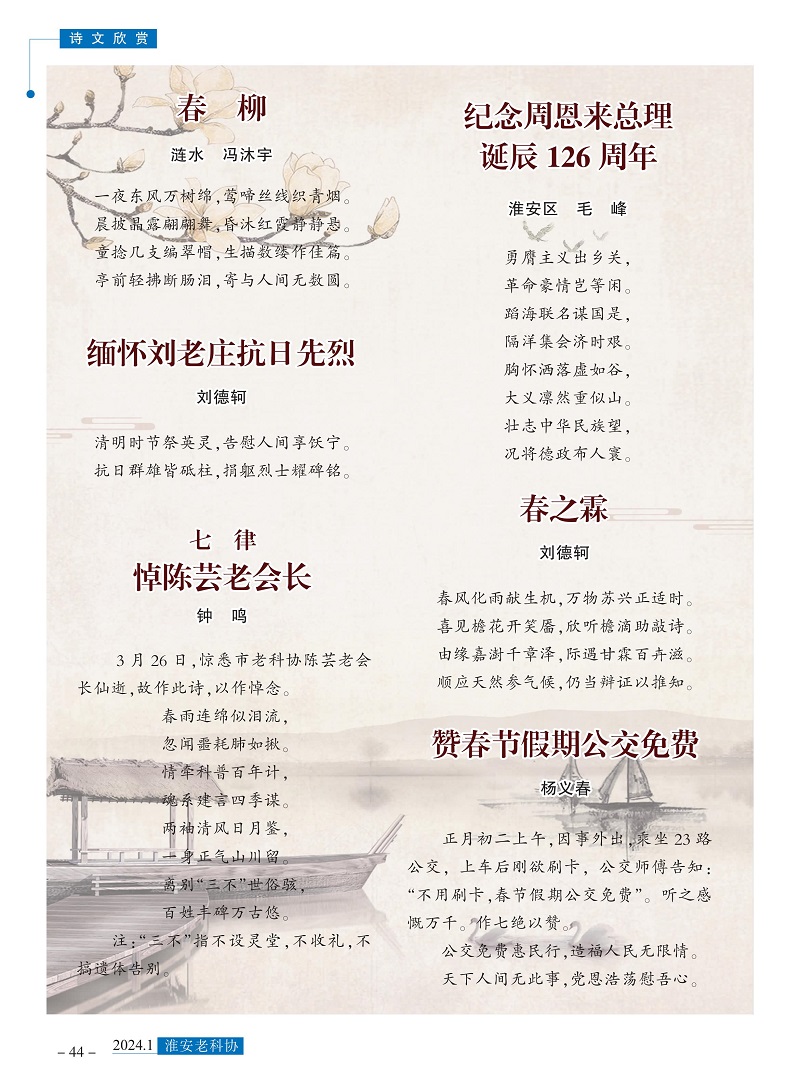 诗文欣赏
春 柳
涟水 冯沐宇
一夜东风万树绵,莺啼丝线织青烟。
晨披晶露翩翩舞,昏沐红霞静静悬。
童捻几支编翠帽,生描数缕作佳篇。
亭前轻拂断肠泪,寄与人间无数圆。
缅怀刘老庄抗日先烈
刘德轲
清明时节祭英灵,告慰人间享饫宁。
抗日群雄皆砥柱,捐躯烈士耀碑铭。
七 律
悼陈芸老会长
钟 鸣
3月26日,惊悉市老科协陈芸老会
长仙逝,故作此诗,以作悼念。
春雨连绵似泪流,
忽闻噩耗肺如揪。
情牵科普百年计,
魂系建言四季谋。
两袖清风日月鉴,
一身正气山川留。
离别“三不”世俗骇,
百姓丰碑万古悠。
注:“三不”指不设灵堂,不收礼,不
搞遗体告别。
纪念周恩来总理
诞辰126周年
淮安区 毛 峰
勇膺主义出乡关,
革命豪情岂等闲。
蹈海联名谋国是,
隔洋集会济时艰。
胸怀洒落虚如谷,
大义凛然重似山。
壮志中华民族望,
况将德政布人寰。
春之霖
刘德轲
春风化雨献生机,万物苏兴正适时。
喜见檐花开笑靥,欣听檐滴助敲诗。
由缘嘉澍千章泽,际遇甘霖百卉滋。
顺应天然参气候,仍当辩证以推知。
赞春节假期公交免费
杨义春
正月初二上午,因事外出,乘坐23路
公交，上车后刚欲刷卡，公交师傅告知:
“不用刷卡,春节假期公交免费”。听之感
慨万千。作七绝以赞。
公交免费惠民行,造福人民无限情。
天下人间无此事,党恩浩荡慰吾心。
－44－
2024.1 淮安老科协